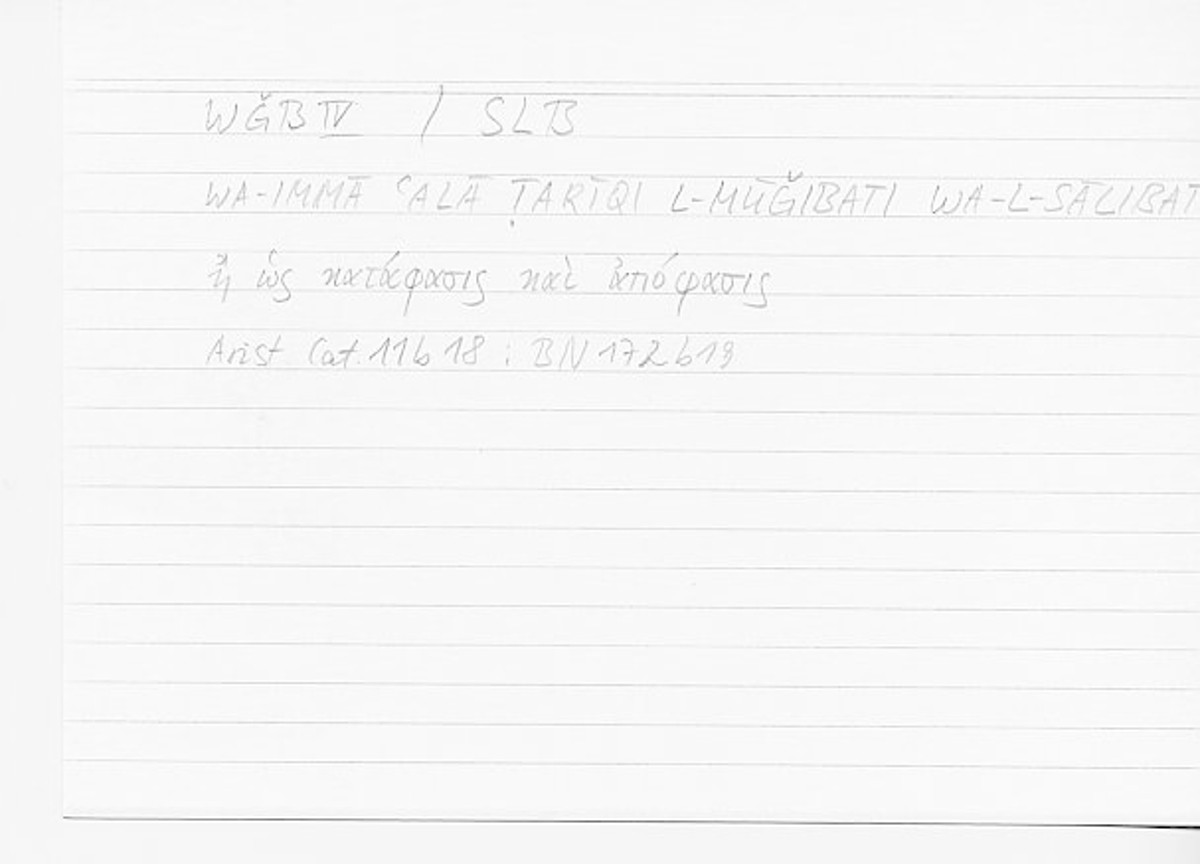 WǦB IV / SLB
WA-IMMĀ ʿALĀ ṬARĪQI L-MŪǦIBATI WA-L-SĀLIBAT
ἢ ὡς κατάφασις καὶ ἀπόφασις
Arist Cat. 11b18 : BN 172b19